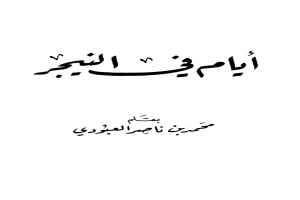 أيام في النيجر
بقلم
محمد بن ناصر العبودي